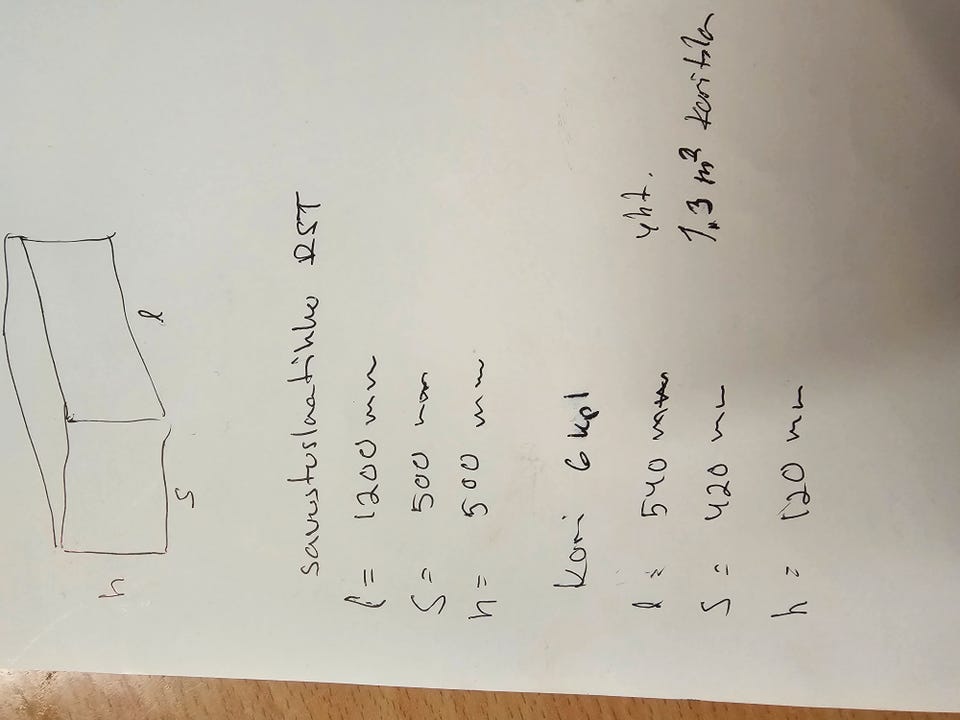 h
s
l
savustuslaatikko RST
l = 1200 mm
s = 500 mm
h = 500 mm
Kori 6 kpl
l = 540 mm yht.
s = 420 mm 1.3 m² koritila
h = 120 mm